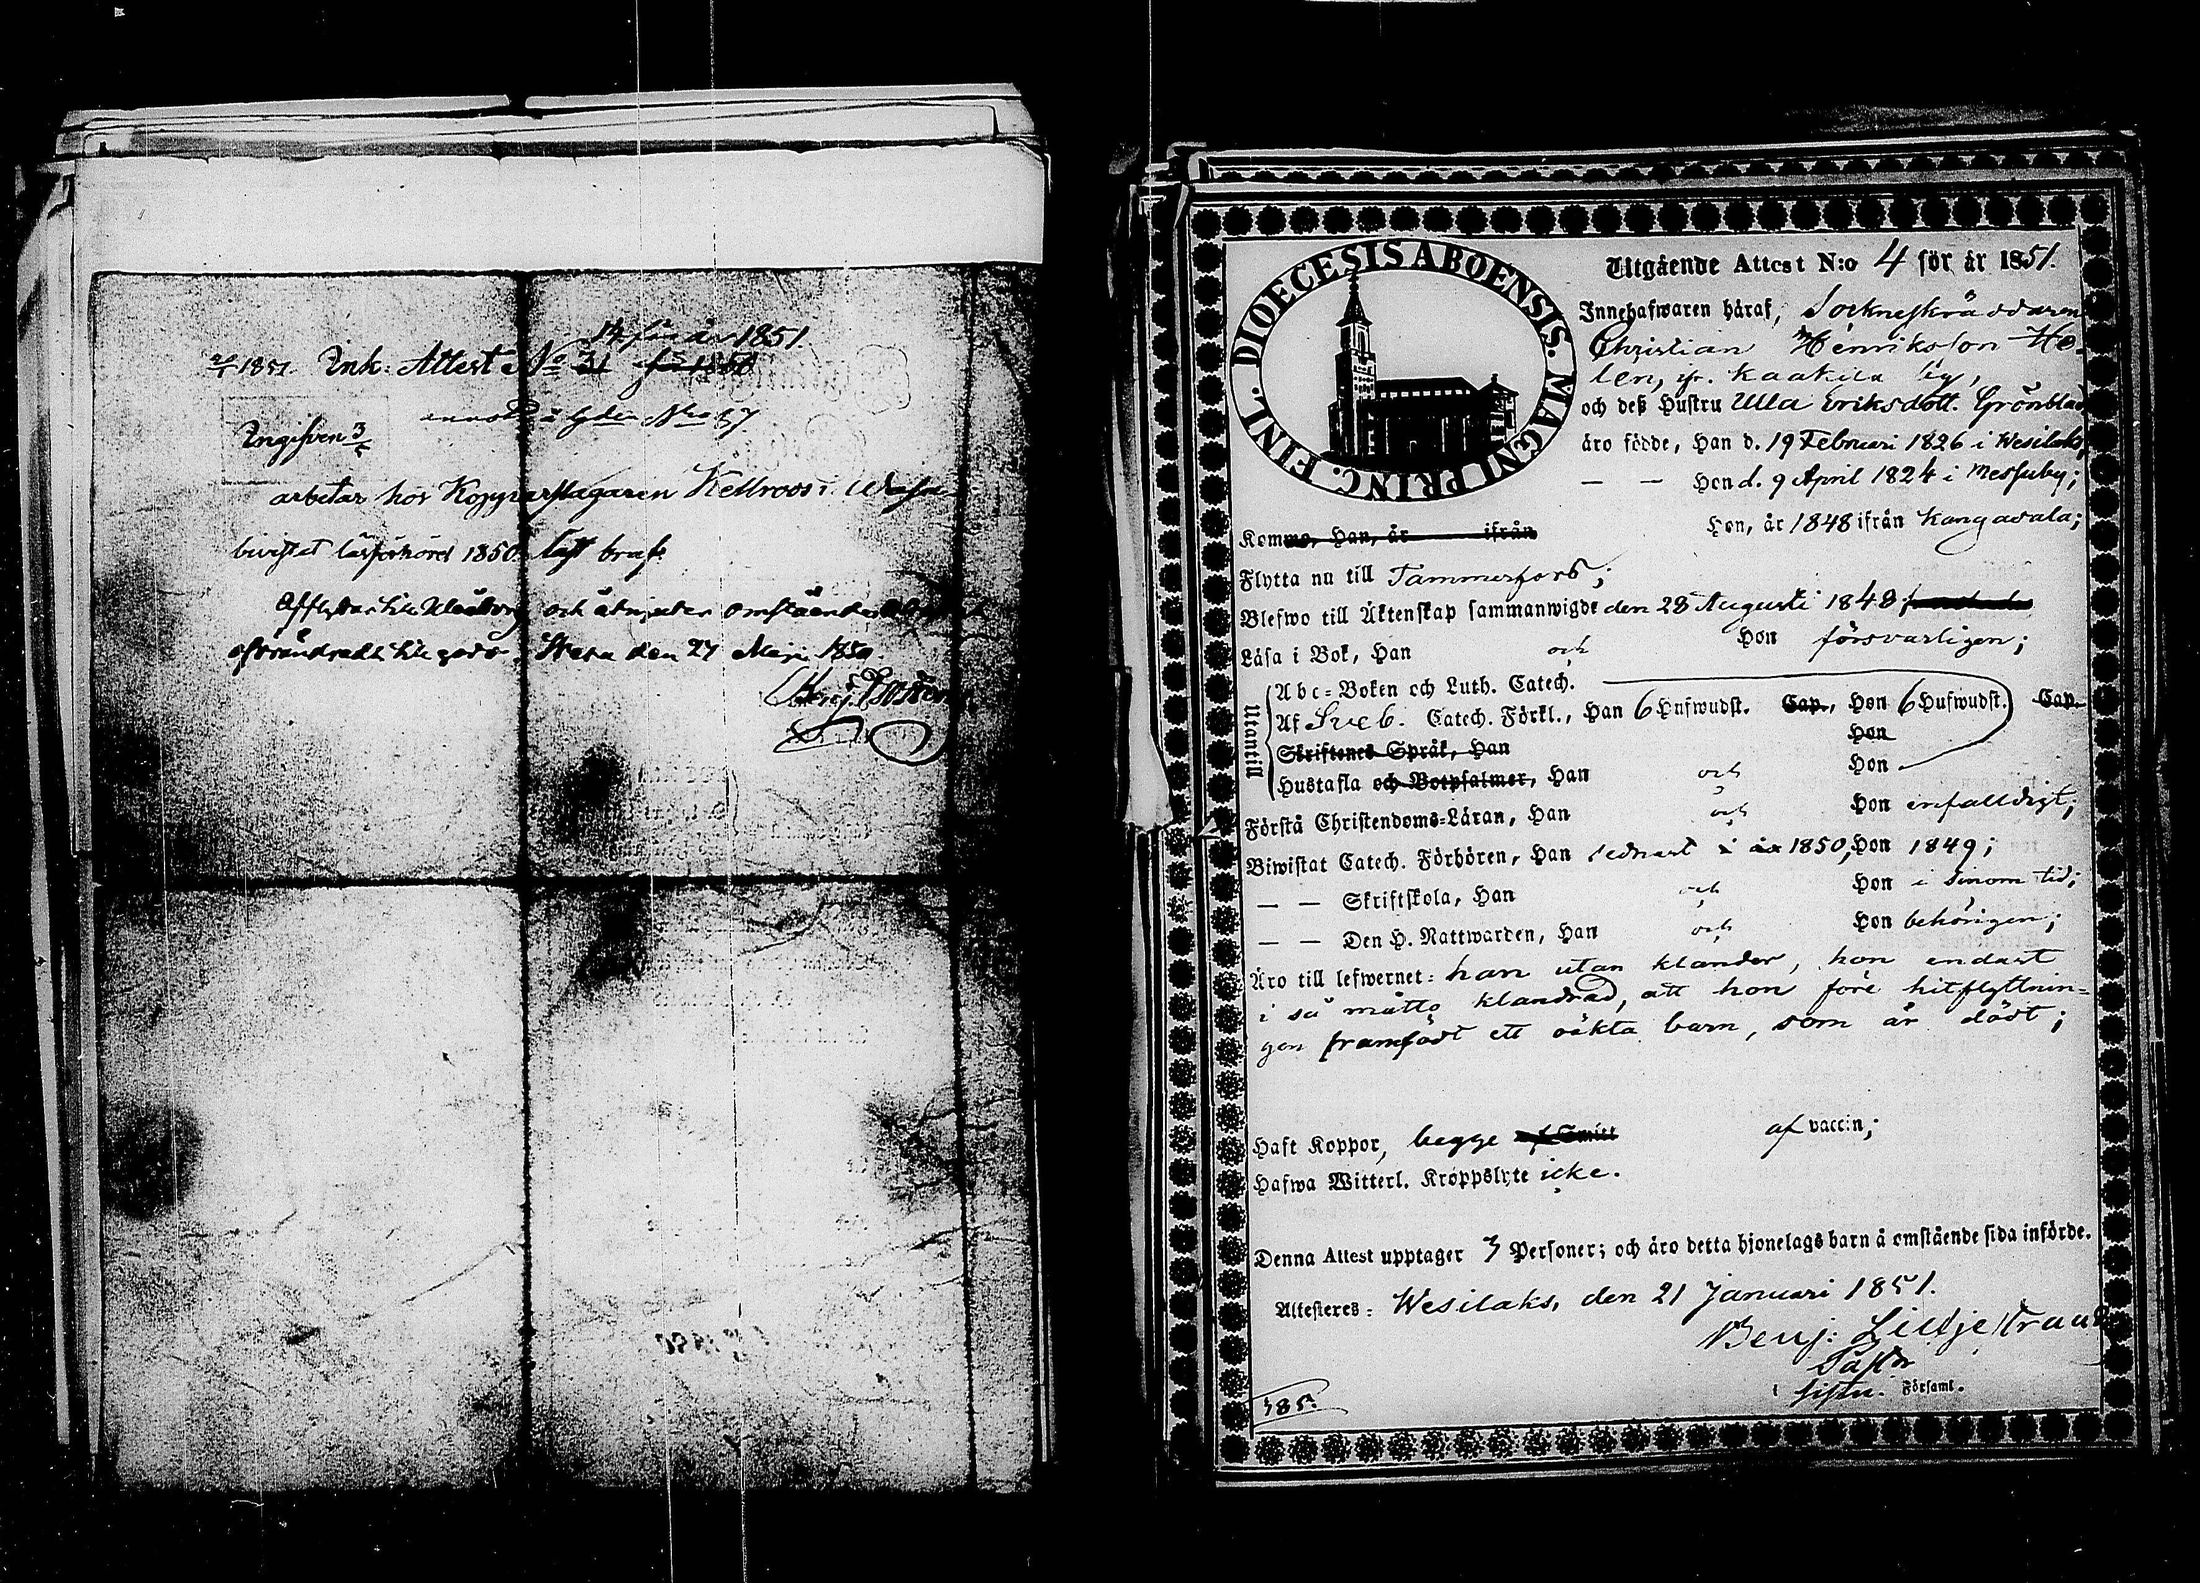 14 för år 1851.
1851. Ink. Attest No 31 för 1850
Ingifven 3/5
arbetar hos Kopparslagaren Kellroos i
bivistat läsförhöret 1850. läst braf.
Afflyttar till Uleåborg och åtnjuter omstående
oförändradt till godo. Wasa den 27 Maji 1850.
DIOECESIS ABOENSIS. MAGNI PRINC. FINL.
Utgående Attest N:o 4 för år 1851.
Innehafwaren häraf, Sockneskräddaren
Christian Henriksson He-
len, fr. Kaakila by,
och deß Hustru Ulla Eriksdott. Grönblad
äro födde, Han d. 19 Februari 1826 i Wesilaks,
— — Hon d. 9 April 1824 i Messuby;
Komme, Han, år ifrån Hon, år 1848 ifrån Kangasala;
Flytta nu till Tammerfors;
Blefwo till Äktenskap sammanwigde den 28 Augusti 1848;
Läsa i Bok, Han och Hon försvarligen;
Utantill
Abc-Boken och Luth. Catech.
Af Sveb. Catech. Förkl., Han 6 Hufwudst. Cap., Hon 6 Hufwudst. Cap.
Skriftenes Språk, Han Hon
Hustafla och Botpsalmer, Han och Hon
Förstå Christendoms-Läran, Han och Hon enfalldigt;
Biwistat Catech. Förhören, Han sednast i år 1850, Hon 1849;
— — Skriftskola, Han och Hon i sinom tid;
— — Den H. Nattwarden, Han och Hon behörigen;
Äro till lefwernet: han utan klander, hon endast
i så måtto klandrad, att hon före hitflyttnin-
gen framfödt ett oäkta barn, som är dödt;
Haft Koppor, begge af Smitt af vaccin;
Hafwa Witterl. Kroppslyte icke.
Denna Attest upptager 3 Personer; och äro detta hjonelags barn å omstående sida införde.
Attesteres: Wesilaks, den 21 Januari 1851.
Benj: Lilljestrand
Pastor
i Församl.
185.